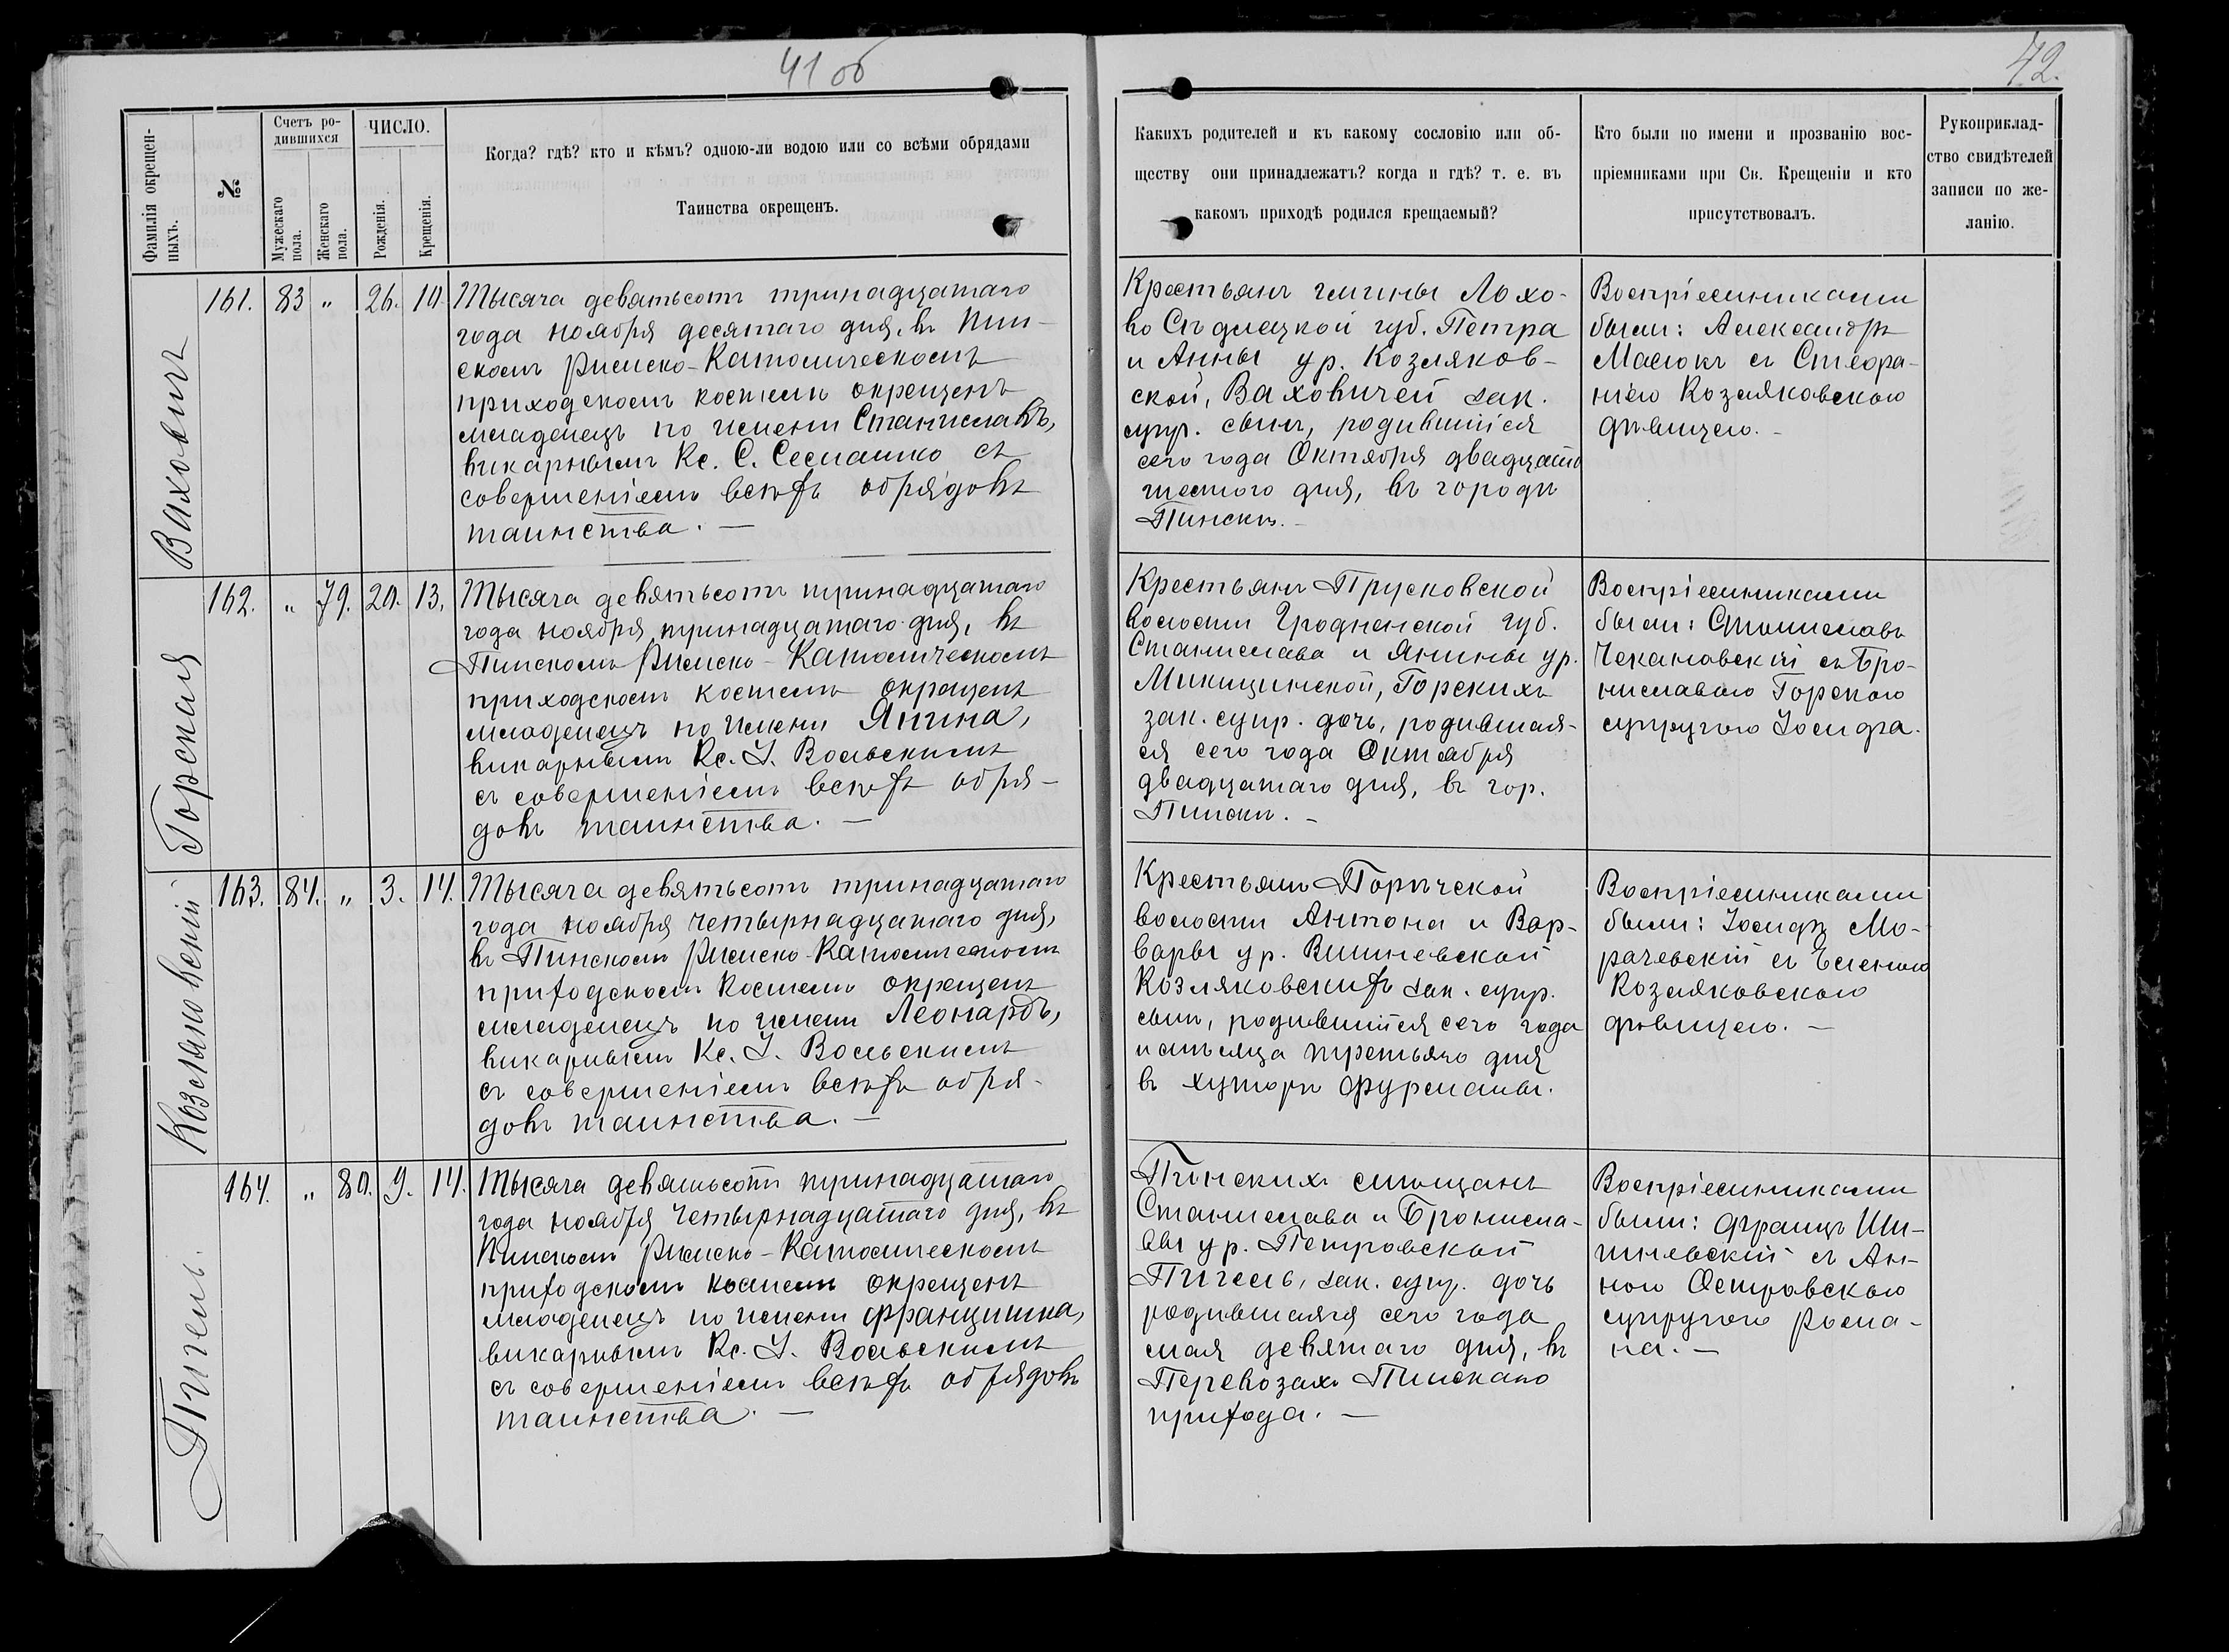 41 об
42.
Фамилія окрещен-
ныхъ.
№
Счетъ ро-
дившихся
Мужескаго
пола.
Женскаго
пола.
ЧИСЛО.
Рожденія.
Крещенія.
Когда? гдѣ? кто и кѣмъ? одною-ли водою или со всѣми обрядами
Таинства окрещенъ.
Какихъ родителей и къ какому сословію или об-
ществу они принадлежатъ? когда и гдѣ? т. е. въ
какомъ приходѣ родился крещаемый?
Кто были по имени и прозванію вос-
пріемниками при Св. Крещеніи и кто
присутствовалъ.
Рукоприклад-
ство свидѣтелей
записи по же-
ланію.
Ваховичъ
161. 83 „ 26. 10.
Тысяча девятьсотъ тринадцатаго
года ноября десятаго дня, въ Пин-
скомъ Римско-Католическомъ
приходскомъ костелѣ окрещенъ
младенецъ по имени Станиславъ,
викарнымъ Кс. С. Сесмашко съ
совершеніемъ всѣхъ обрядовъ
таинства. —
Крестьянъ гмины Лохо-
во Сѣдлецкой губ. Петра
и Анны ур. Козляков-
ской, Ваховичей зак.
супр. сынъ, родившійся
сего года Октября двадцать
шестого дня, въ городѣ
Пинскѣ. —
Воспріемниками
были: Александръ
Масюкъ съ Стефа-
ніею Козляковскою
дѣвицею. —
Горская
162. „ 79. 20. 13.
Тысяча девятьсотъ тринадцатаго
года ноября тринадцатаго дня, въ
Пинскомъ Римско-Католическомъ
приходскомъ костелѣ окрещенъ
младенецъ по имени Янина,
викарнымъ Кс. І. Вольскимъ
съ совершеніемъ всѣхъ обря-
довъ таинства. —
Крестьянъ Прусковской
волости Гродненской губ.
Станислава и Янины ур.
Микицинской, Горскихъ
зак. супр. дочь, родившая-
ся сего года Октября
двадцатаго дня, въ гор.
Пинскѣ. —
Воспріемниками
были: Станиславъ
Чекановскій съ Бро-
ниславою Горскою
супругою Іосифа.
Козляковскій
163. 84. „ 3. 14.
Тысяча девятьсотъ тринадцатаго
года ноября четырнадцатаго дня,
въ Пинскомъ Римско-Католическомъ
приходскомъ костелѣ окрещенъ
младенецъ по имени Леонардъ,
викарнымъ Кс. І. Вольскимъ
съ совершеніемъ всѣхъ обря-
довъ таинства. —
Крестьянъ Порѣчской
волости Антона и Вар-
вары ур. Вишневской
Козляковскихъ зак. супр.
сынъ, родившійся сего года
и мѣсяца третьяго дня
въ хуторѣ Фурманы.
Воспріемниками
были: Іосифъ Мо-
рачевскій съ Еленою
Козляковскою
дѣвицею. —
Пигель.
164. „ 80. 9. 14.
Тысяча девятьсотъ тринадцатаго
года ноября четырнадцатаго дня, въ
Пинскомъ Римско-Католическомъ
приходскомъ костелѣ окрещенъ
младенецъ по имени Францишка,
викарнымъ Кс. І. Вольскимъ
съ совершеніемъ всѣхъ обрядовъ
таинства. —
Пинскихъ мѣщанъ
Станислава и Бронисла-
вы ур. Петровской
Пигель, зак. супр. дочь
родившаяся сего года
мая девятаго дня, въ
Перевозахъ Пинскаго
прихода. —
Воспріемниками
были: Францъ Ши-
шневскій съ Ан-
ною Островскою
супругою Рома-
на. —